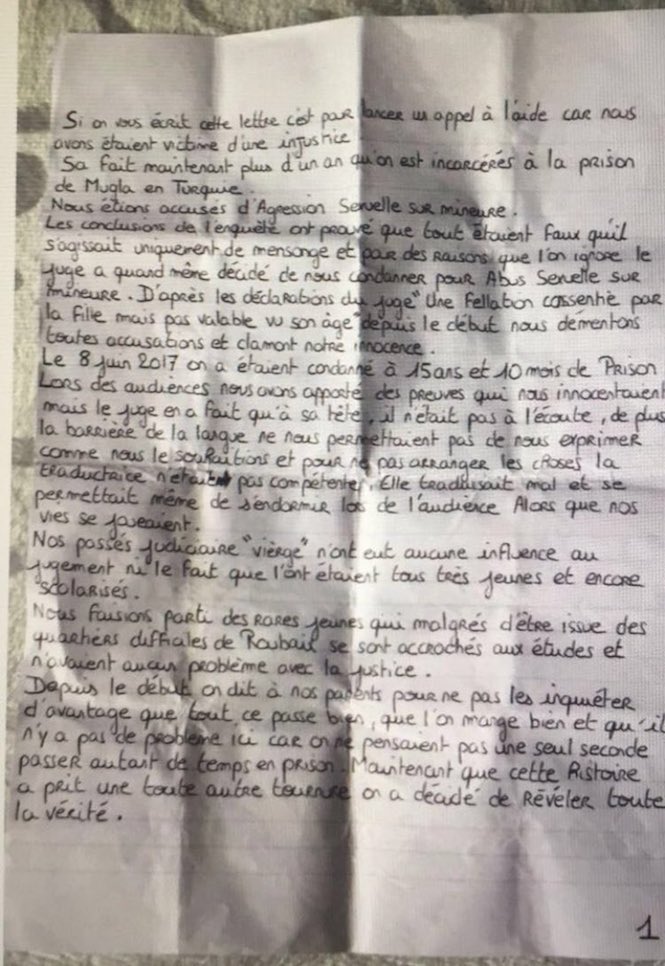 Si on vous écrit cette lettre c'est par lancer un appel à l'aide car nous
avons étaient victime d'une injustice.
Sa fait maintenant plus d'un an qu'on est incarcérés à la prison
de Mugla en Turquie.
Nous étions accusés d'Agression Sexuelle sur mineure.
Les conclusions de l'enquête ont prouvé que tout étaient faux qu'il
s'agissait uniquement de mensonge et pour des raisons que l'on ignore le
juge a quand même décidé de nous condanner pour Abus Sexuelle sur
mineure. D'après les déclarations du juge "Une Fellation consentie par
la fille mais pas valable vu son âge" depuis le début nous démentons
toutes accusations et clamont notre innocence.
Le 8 juin 2017 on a étaient condanné à 15 ans et 10 mois de Prison
Lors des audiences nous avons apporté des preuves qui nous innocentaient
mais le juge en a fait qu'à sa tête, il n'était pas à l'écoute, de plus
la barrière de la langue ne nous permettaient pas de nous exprimer
comme nous le souhaitions et pour ne pas arranger les choses la
traductrice n'était pas compétente. Elle traduisait mal et se
permettait même de s'endormir lors de l'audience Alors que nos
vies se joueaient.
Nos passés judiciaire "vièrge" n'ont eut aucune influence au
jugement ni le fait que l'ont étaient tous très jeunes et encore
scolarisés.
Nous faisions parti des rares jeunes qui malgrés d'être issue des
quartiers difficiles de Roubaix se sont accrochés aux études et
n'avaient aucun problème avec la justice.
Depuis le début on dit à nos parents pour ne pas les inquiéter
d'avantage que tout ce passe bien, que l'on mange bien et qu'il
n'y a pas de problème ici car on ne pensaient pas une seul seconde
passer autant de temps en prison. Maintenant que cette histoire
a prit une toute autre tournure on a décidé de Révéler toute
la vérité.
1